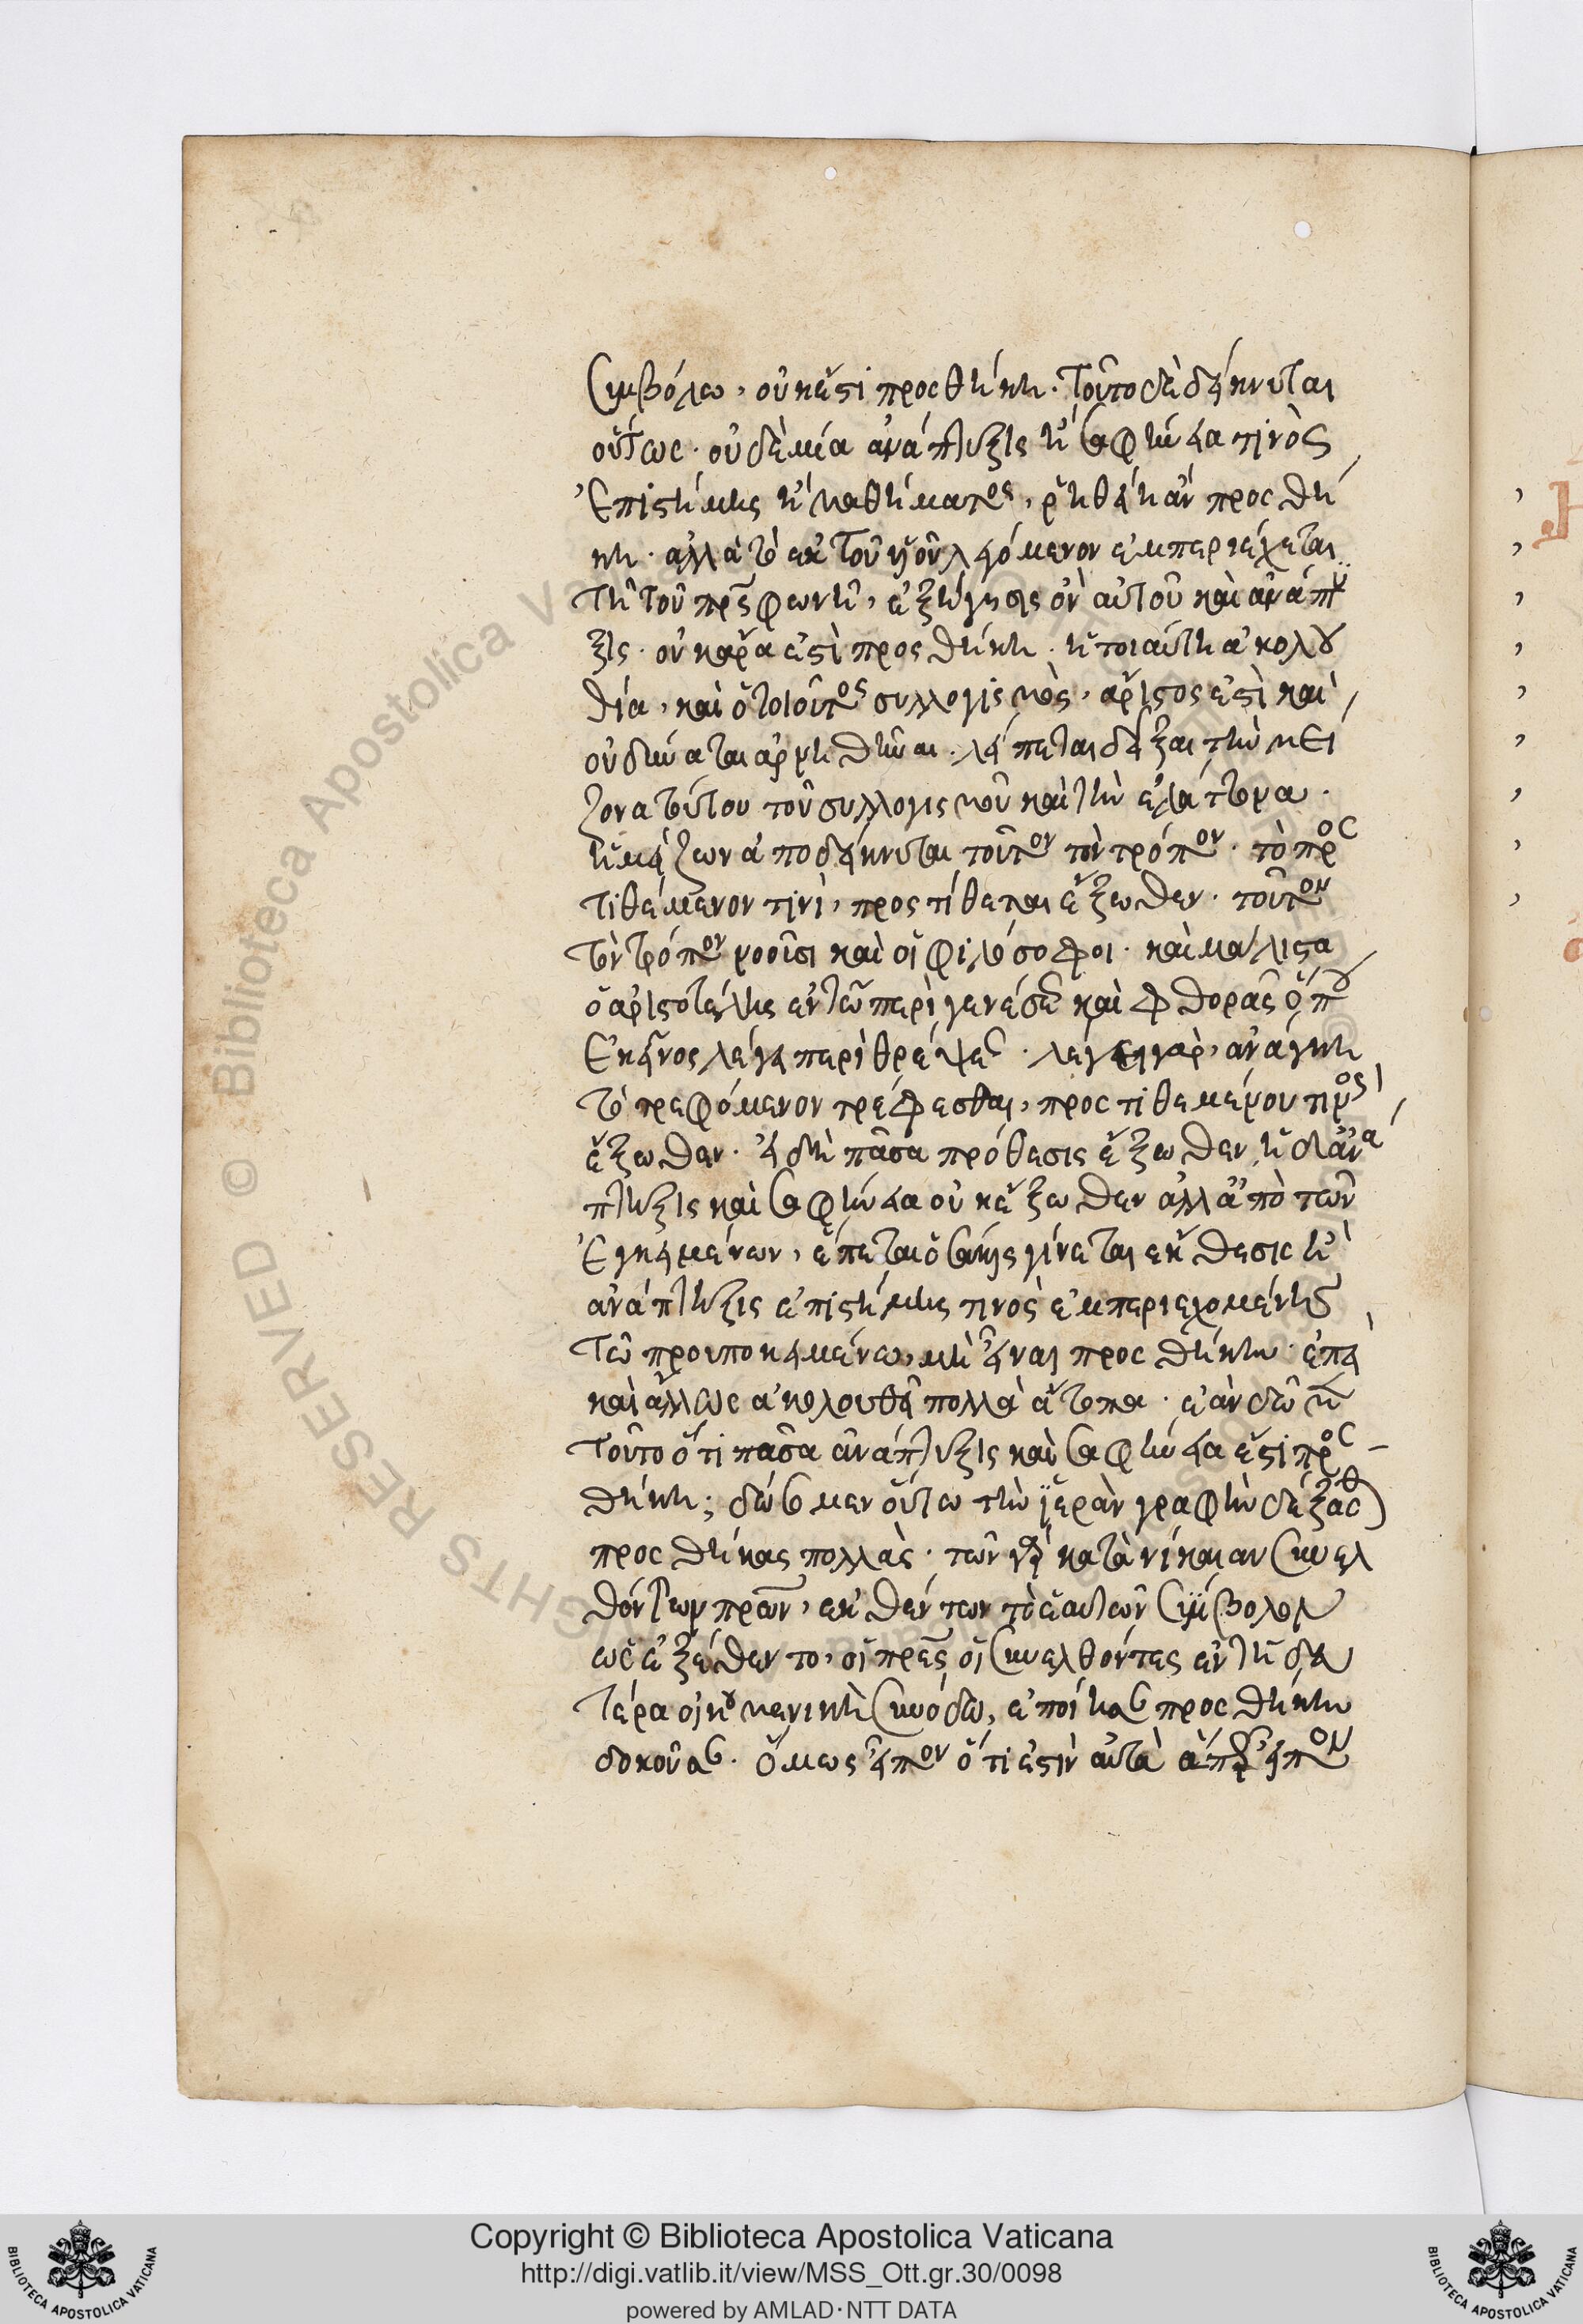 συμβόλω, οὐκ ἔστι προσθήκη. τοῦτο δὲ δείκνυται
οὕτως. οὐδεμία ἀνάπτυξις ἢ σαφήνεια τινὸς
ἐπιστήμης ἢ μαθήματος, ῥηθείη ἂν προσθή
κη. ἀλλὰ τὸ ἐκ τοῦ υἱοῦ λεγόμενον ἐμπεριέχεται
τῆ τοῦ πρς φωνῆ, ἐξήγησις ὂν αὐτοῦ καὶ ἀνάπτυ
ξις. οὐκ ἄρα ἐστὶ προσθήκη. ἡ τοιαύτη ἀκολου
θία, καὶ ὁ τοιοῦτος συλλογισμὸς, ἄριστος ἐστὶ καὶ
οὐ δύναται ἀρνηθῆναι. λείπεται δεῖξαι τὴν μεί
ζονα τούτου τοῦ συλλογισμοῦ καὶ τὴν ἐλάττονα.
ἡ μείζων ἀποδείκνυται τοῦτον τὸν τρόπον. τὸ προσ
τιθέμενον τινὶ, προστίθεται ἔξωθεν. τοῦτον
τὸν τρόπον νοοῦσι καὶ οἱ φιλόσοφοι. καὶ μάλιστα
ὁ ἀριστοτέλης ἐν τῶ περὶ γενέσεως καὶ φθορᾶς ὅπου
ἐκεῖνος λέγει περὶ θρέψεως. λέγει γὰρ, ἀνάγκη
τὸ τρεφόμενον τρέφεσθαι, προστιθεμένου τινός
ἔξωθεν. εἰ δὴ πᾶσα πρόθεσις ἔξωθεν, ἡ δὲ ἀνά
πτυξις καὶ σαφήνεια οὐκ ἔξωθεν ἀλλ' ἀπὸ τῶν
ἐγκειμένων, ἕπεται ὁσάκις γίνεται ἔκθεσις ἢ
ἀνάπτυξις ἐπιστήμης τινὸς ἐμπεριεχομένης
τῶ προυποκειμένω, μὴ εἶναι προσθήκην. ἐπεὶ
καὶ ἄλλως ἀκολουθεῖ πολλὰ ἄτοπα. ἐὰν δῶμεν
τοῦτο ὅτι πᾶσα ἀνάπτυξις καὶ σαφήνεια ἐστὶ προσ-
θήκη; δώσομεν οὕτω τὴν ἱερὰν γραφὴν δέξασθαι
προσθήκας πολλάς. τῶν γὰρ κατὰ νίκαιαν συνελ
θόντων πρων, ἐκθέντων τὸ ἑαυτῶν σύμβολον
ὡς ἐξέθεντο, οἱ πρες οἱ συνελθόντες ἐν τῆ δευ
τέρα οἰκουμενικῆ συνόδω, ἐποίησαν προσθήκην
δοκοῦσαν. ὅμως εἶπον ὅτι ἐστὶν αὐτὰ ἅπερ εἶπον